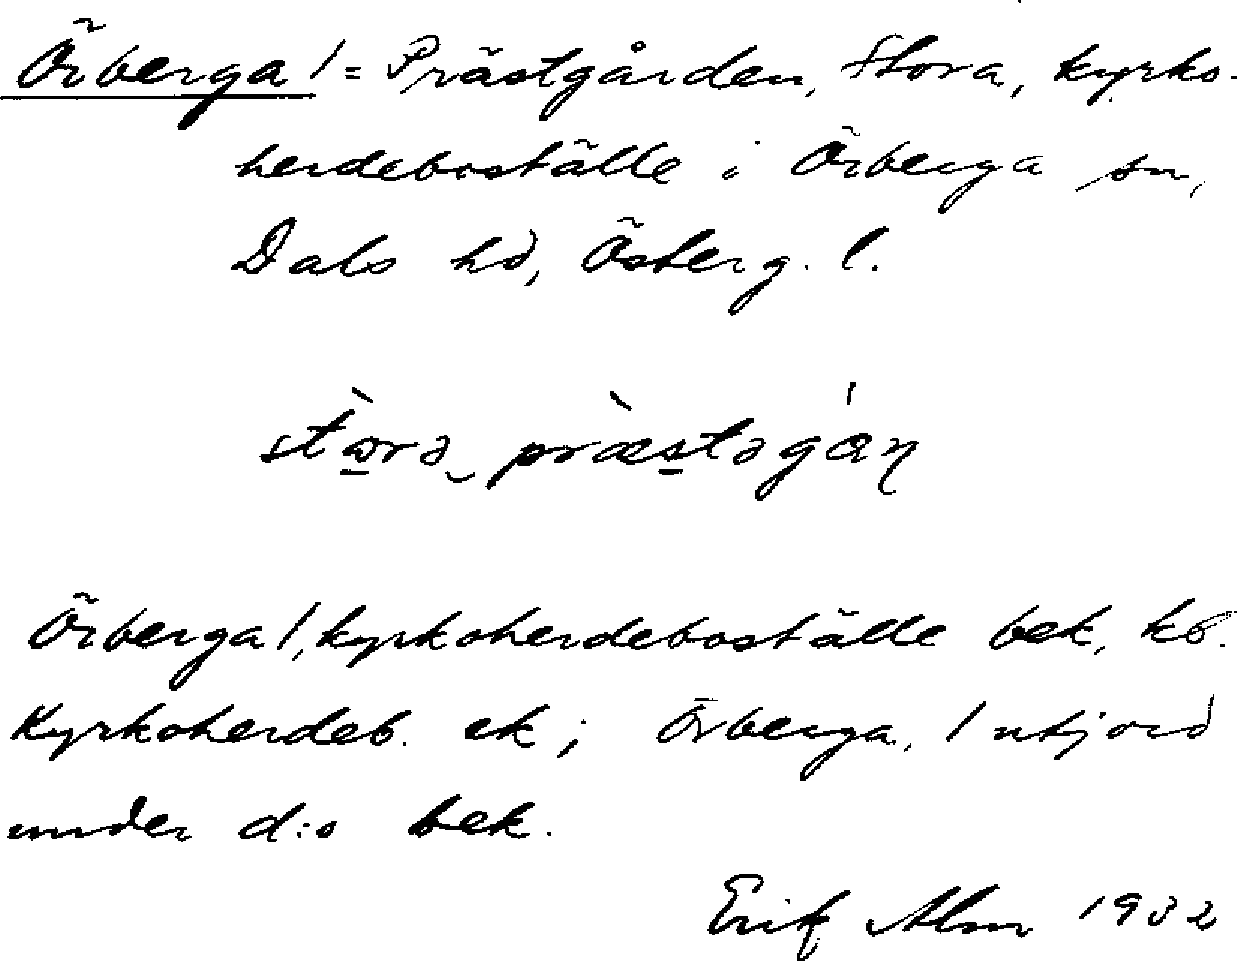 Örberga 1 = Prästgården, Stora, kyrko-
herdeboställe i Örberga sn,
Dals hd, Österg. l.
stɷra præstagán
Örberga 1, kyrkoherdeboställe bek, kb.
Kyrkoherdeb. ek; Örberga, 1 utjord
under d:o bek.
Erik Alm 1932